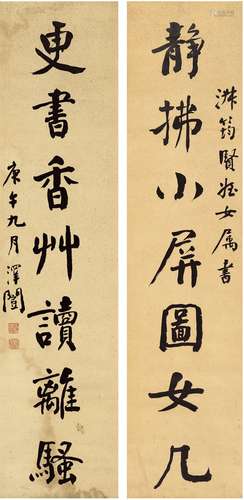 淋筠賢姪女属書
静拂小屏圖女几
更書香艸讀離騷
庚午九月 澤闓